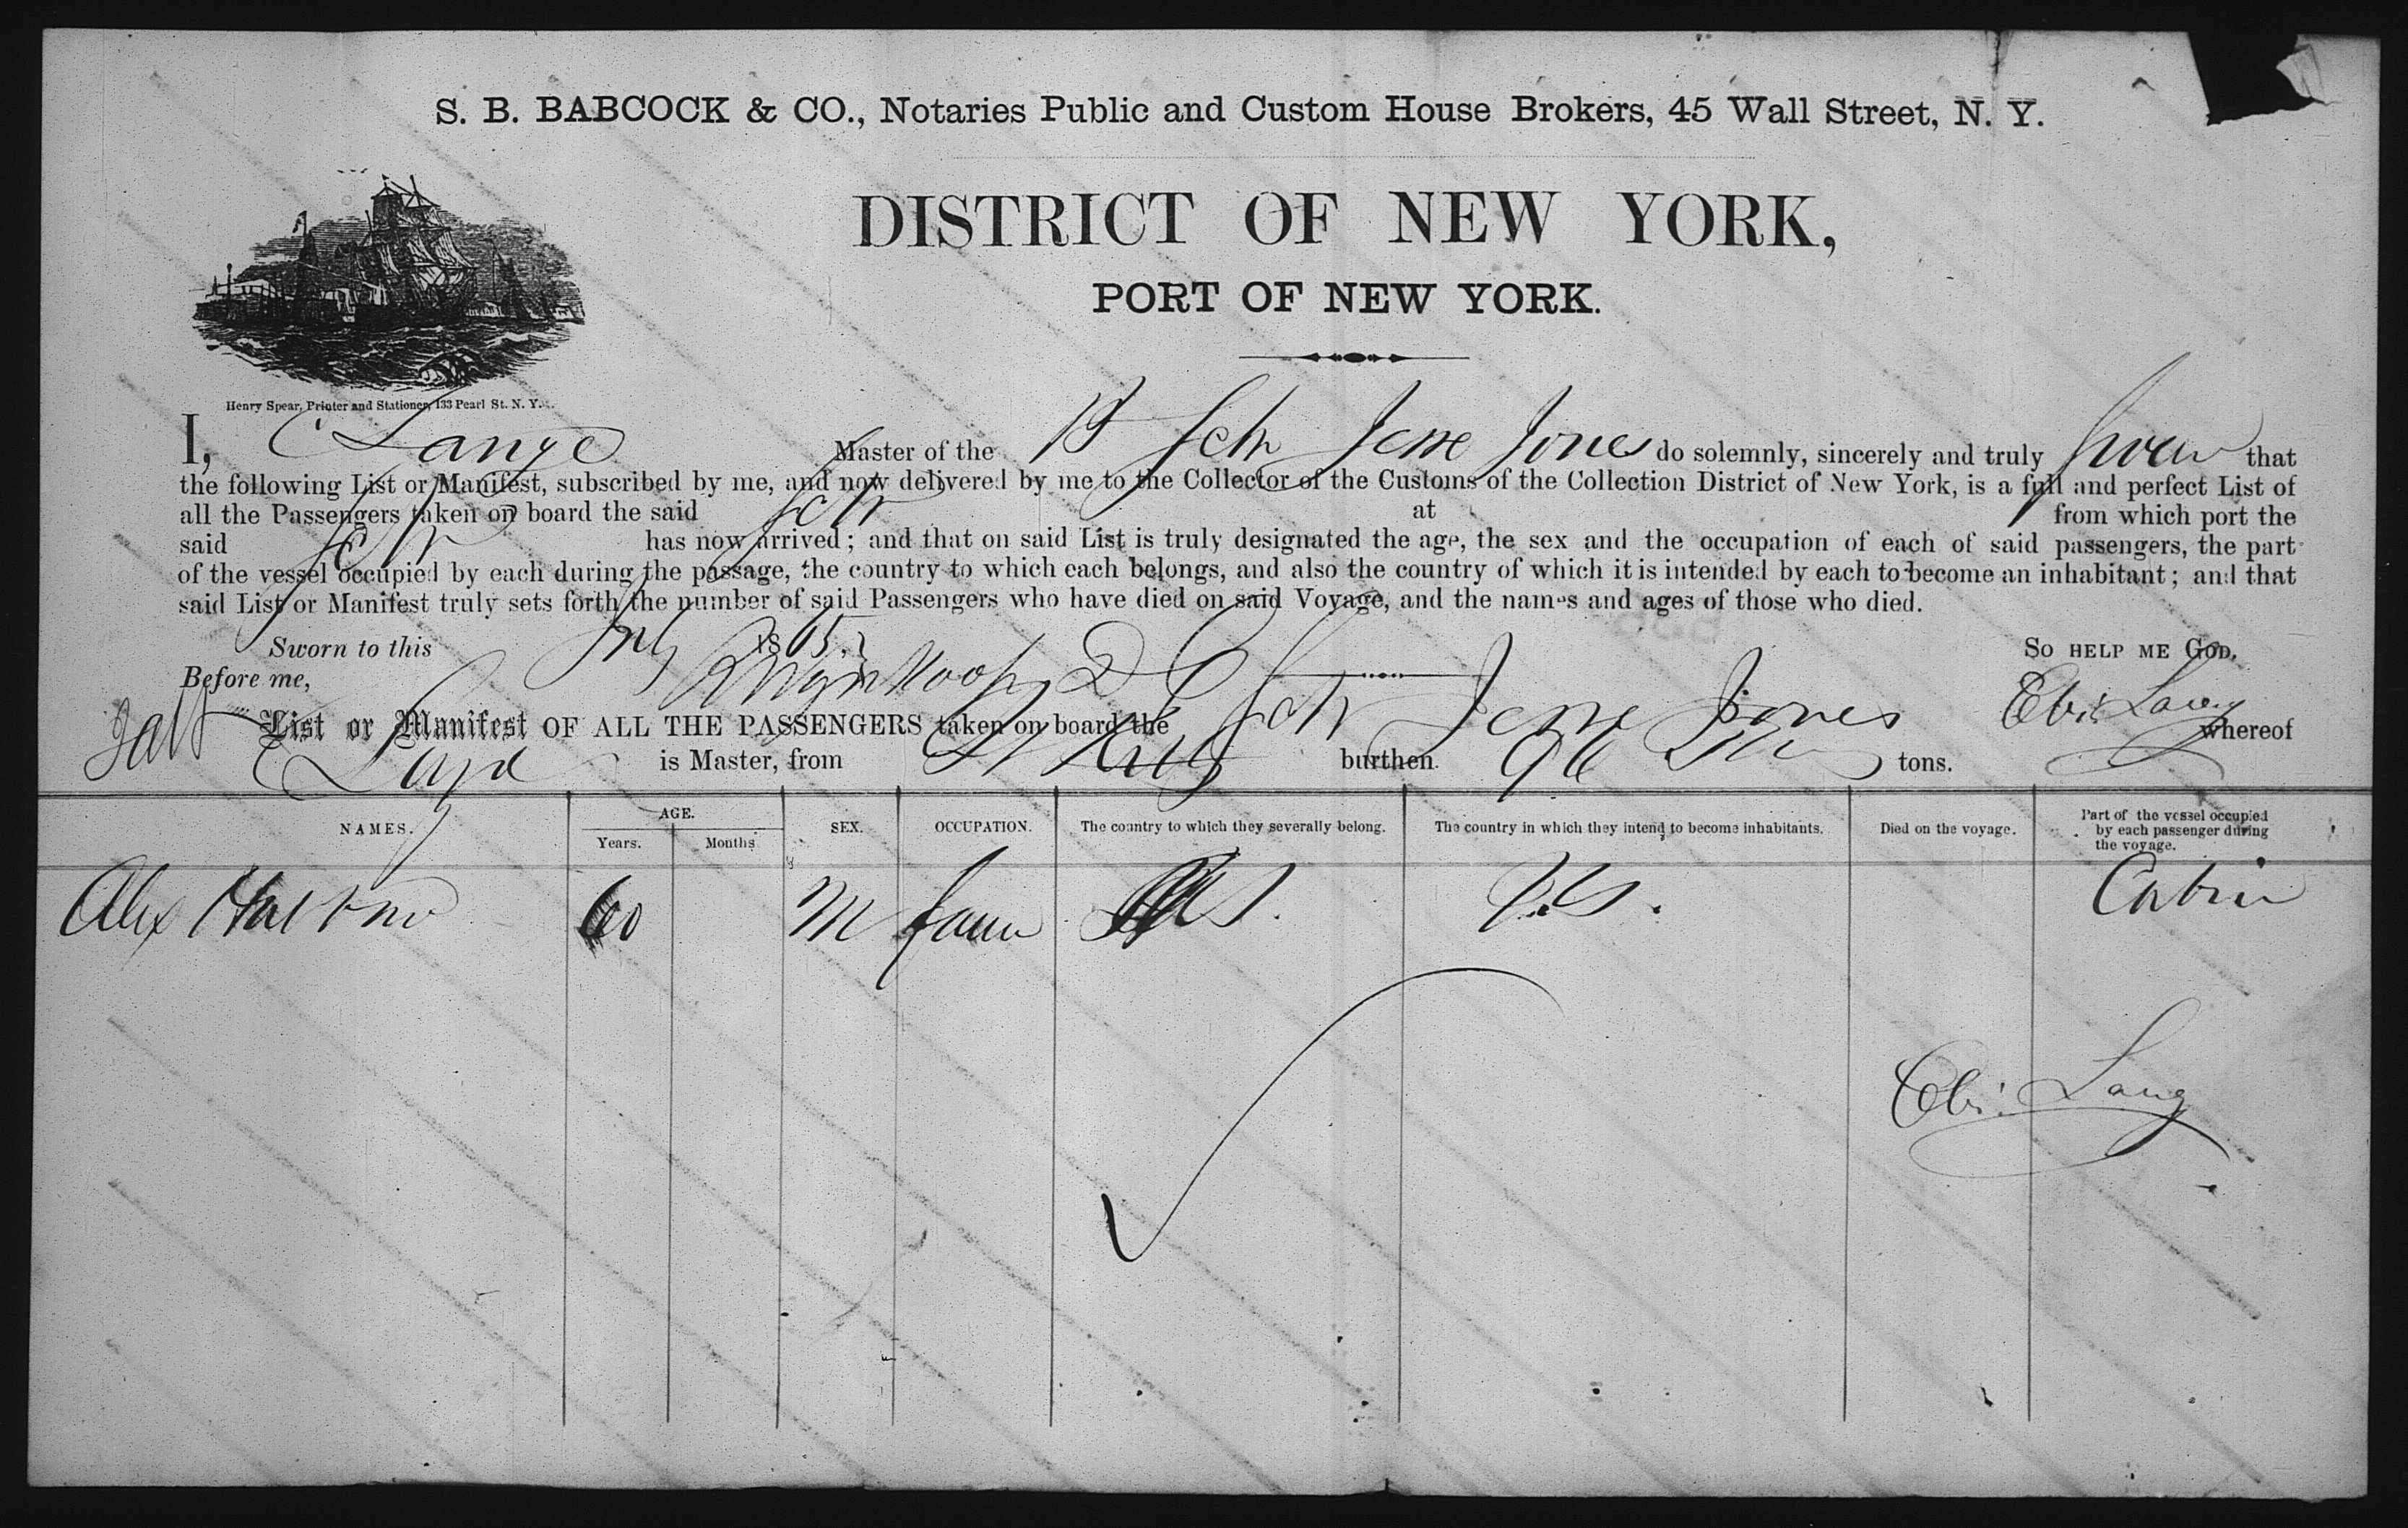 S. B. BABCOCK & CO., Notaries Public and Custom House Brokers, 45 Wall Street, N. Y.
DISTRICT OF NEW YORK,
PORT OF NEW YORK.
Henry Spear, Printer and Stationer, 133 Pearl St. N. Y.
I, C Lange Master of the Schr Jesse Jones do solemnly, sincerely and truly swear that
the following List or Manifest, subscribed by me, and now delivered by me to the Collector of the Customs of the Collection District of New York, is a full and perfect List of
all the Passengers taken on board the said Schr at from which port the
said Schr has now arrived; and that on said List is truly designated the age, the sex and the occupation of each of said passengers, the part
of the vessel occupied by each during the passage, the country to which each belongs, and also the country of which it is intended by each to become an inhabitant; and that
said List or Manifest truly sets forth the number of said Passengers who have died on said Voyage, and the names and ages of those who died.
Sworn to this July 1865. SO HELP ME GOD.
Before me, Wynkoop
List or Manifest OF ALL THE PASSENGERS taken on board the Schr Jesse Jones whereof
C Lange is Master, from burthen 96 tons.
NAMES. AGE. Years. Months SEX. OCCUPATION. The country to which they severally belong. The country in which they intend to become inhabitants. Died on the voyage. Part of the vessel occupied by each passenger during the voyage.
Alex 60 M U.S. Cabin
Lang